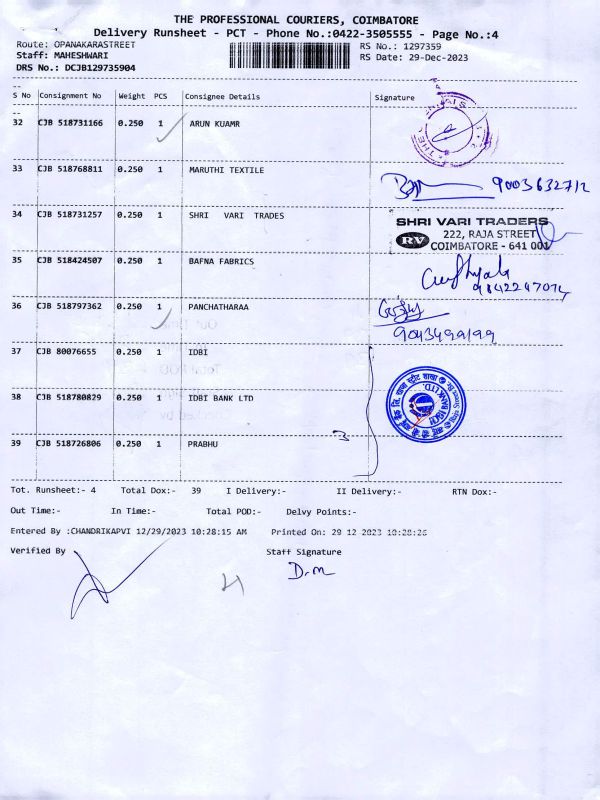 THE PROFESSIONAL COURIERS, COIMBATORE
Delivery Runsheet - PCT - Phone No.:0422-3505555 - Page No.:4
Route: OPANAKARASTREET
Staff: MAHESHWARI
DRS No.: DCJB129735904
RS No.: 1297359
RS Date: 29-Dec-2023
S No Consignment No Weight PCS Consignee Details Signature
32 CJB 518731166 0.250 1 ARUN KUAMR
33 CJB 518768811 0.250 1 MARUTHI TEXTILE 9003632712
34 CJB 518731257 0.250 1 SHRI VARI TRADES
SHRI VARI TRADERS
RV 222, RAJA STREET
COIMBATORE - 641 001
35 CJB 518424507 0.250 1 BAFNA FABRICS
9842247074
36 CJB 518797362 0.250 1 PANCHATHARAA
9043499199
37 CJB 80076655 0.250 1 IDBI
38 CJB 518780829 0.250 1 IDBI BANK LTD
39 CJB 518726806 0.250 1 PRABHU
3
Tot. Runsheet:- 4 Total Dox:- 39 I Delivery:- II Delivery:- RTN Dox:-
Out Time:- In Time:- Total POD:- Delvy Points:-
Entered By :CHANDRIKAPVI 12/29/2023 10:28:15 AM Printed On: 29 12 2023 10:28:26
Verified By Staff Signature
D.m